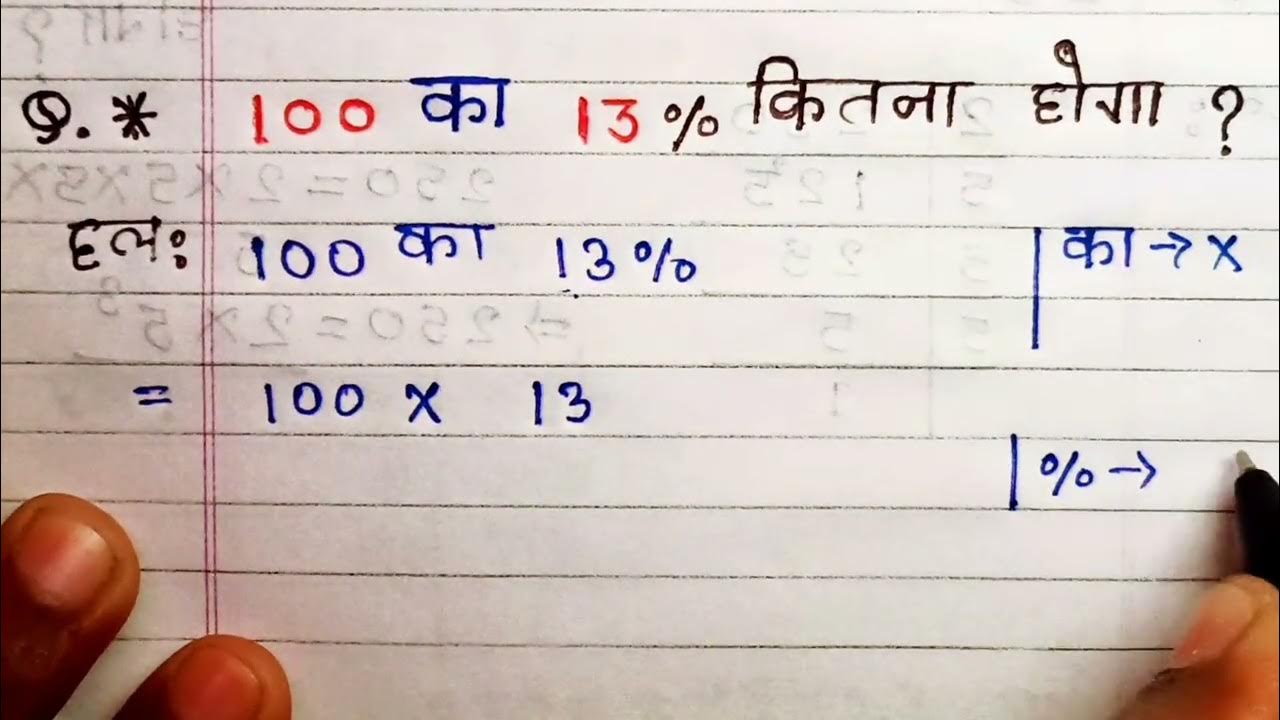 Q. * 100 का 13% कितना होगा ?
हल: 100 का 13%
का → x
= 100 x 13
% →